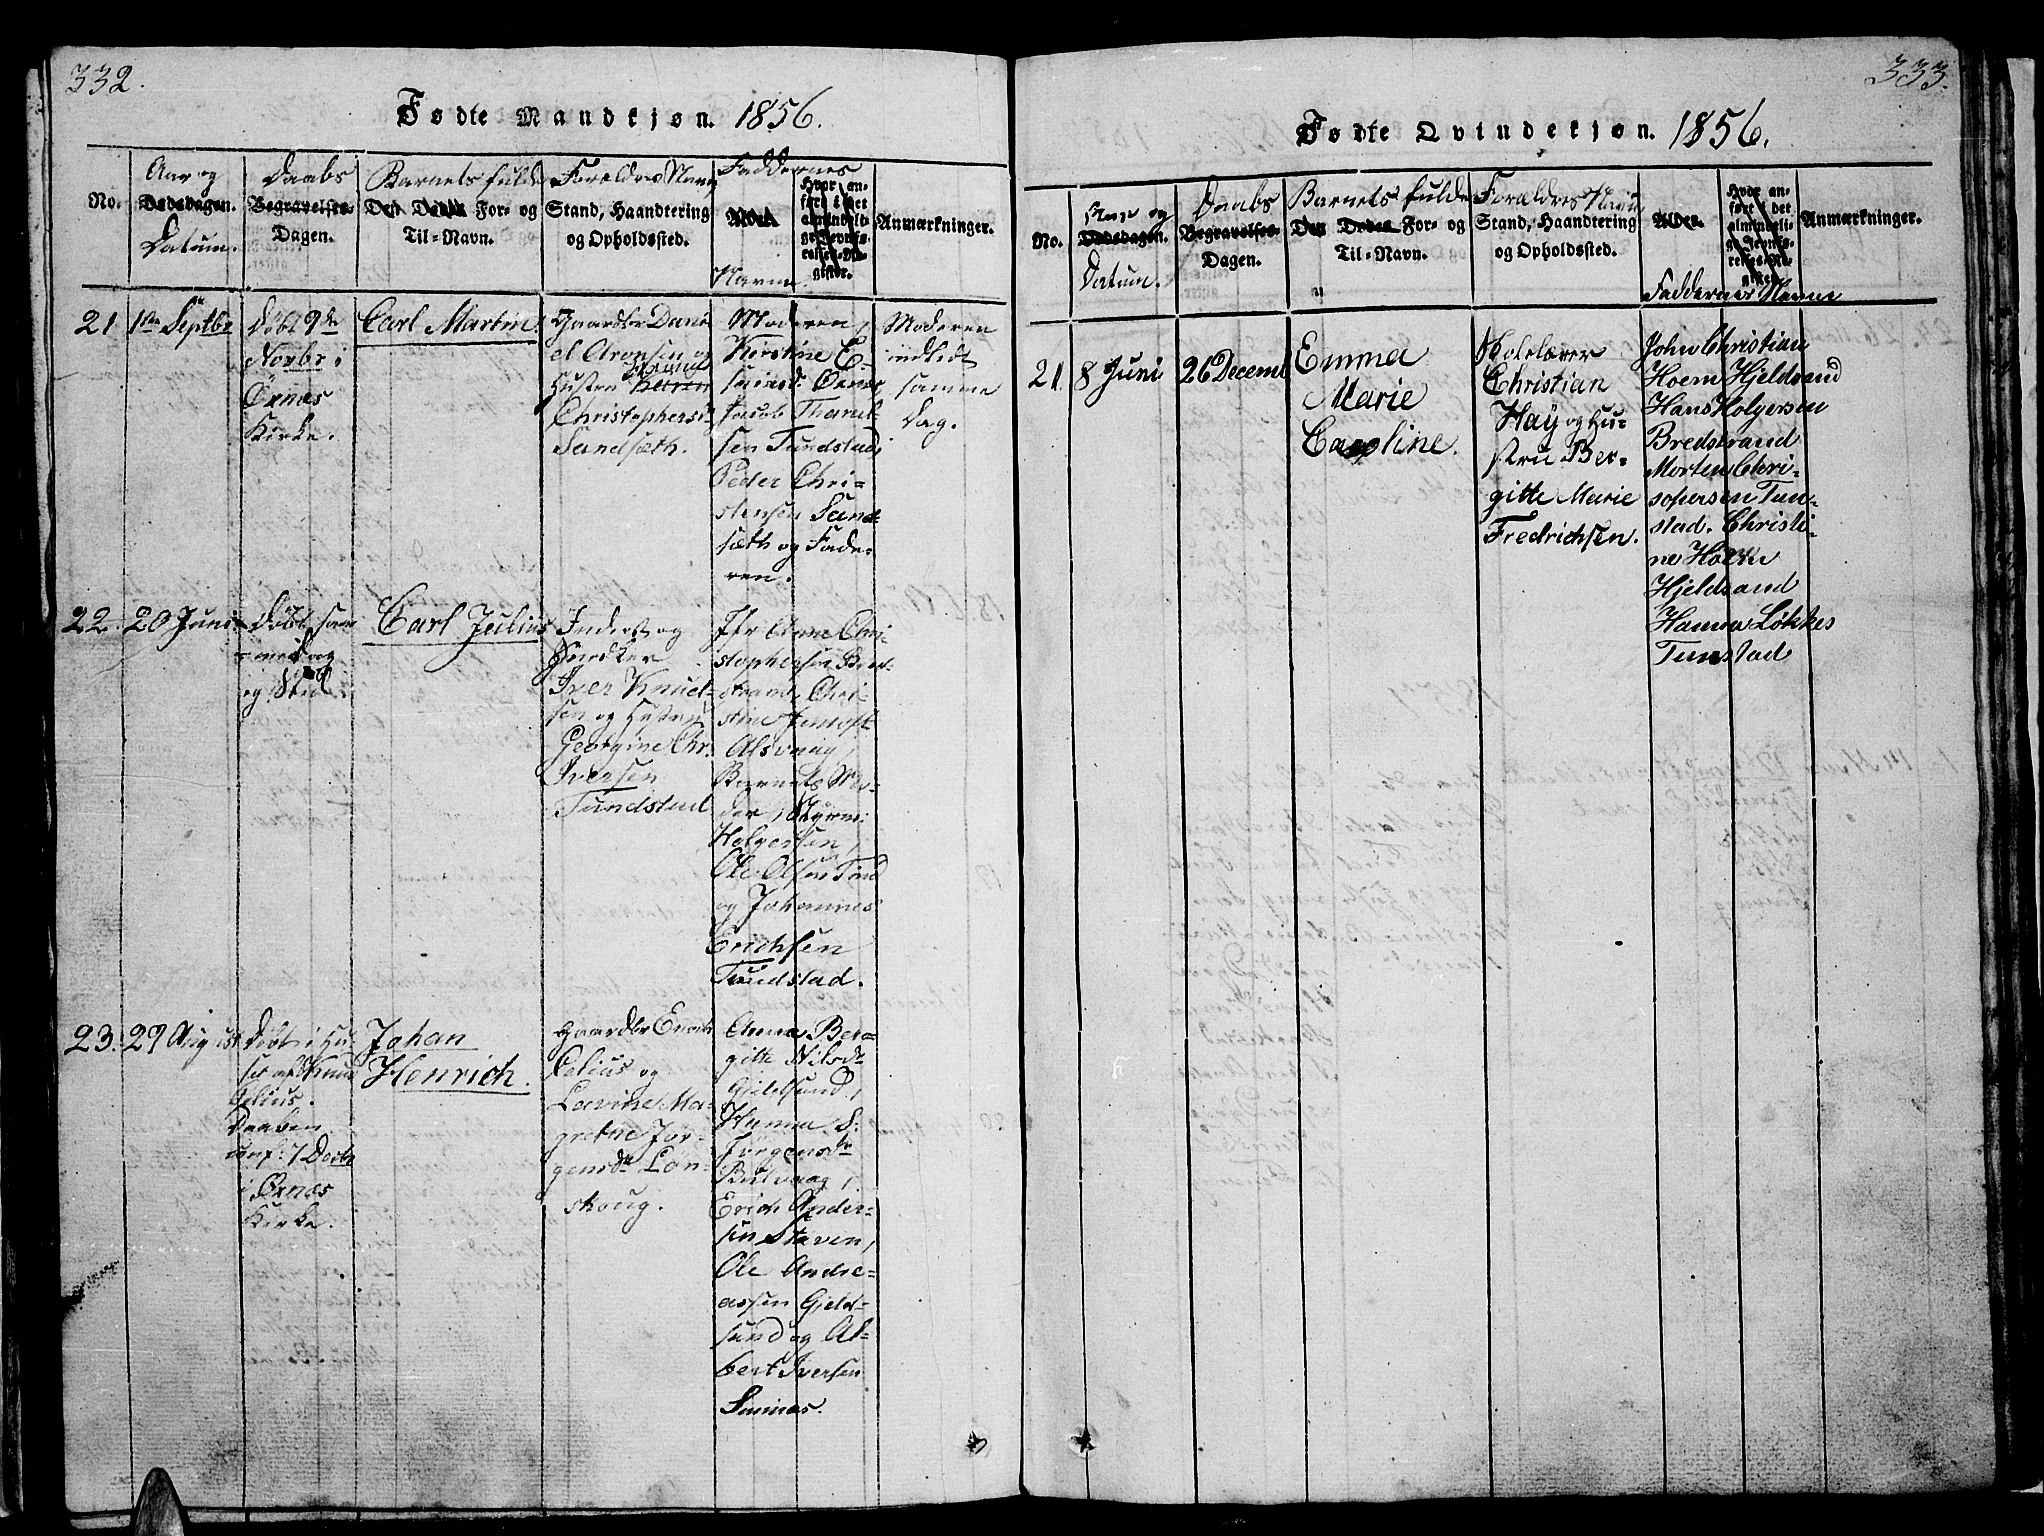 332.
Fødte Mandkjøn. 1856.
No.
Aar og
Dødsdagen.
Datum.
Daabs
Begravelses-
Dagen.
Barnets fulde
Den Dødes For- og
Til-Navn.
Foreldres Navn
Stand, Haandtering
og Opholdssted.
Faddernes
Alder
Navne.
Hvor an-
ført i det
almindeli-
ge Jevnfø-
relses-Re-
gister.
Anmærkninger.
21
1ste Septbr
Døbt 9de
Novbr i
Ørnæs
Kirke.
Carl Martin.
Gaardbr Dani-
el Aronsen og
Hustru
Christophersd
Sandsæth.
Moderen,
Kirstine E.
Ørnæs
Jacob Tharald-
sen Tundstad,
Peder Chri-
stensen Sand-
sæth og Fade-
ren.
Moderen
indledt
samme
Dag.
22.
20 Juni
Døbt sam-
me dag
og Sted.
Carl Julius
Inderst og
Snedker
Iver Knud-
sen og Hustru
Georgine Chr.
Iversen
Tundstad
Jfr Anne Chri-
stophersen Bred-
strand, Chri-
stine Jentoft
Alsvaag,
Barnets Mo-
der,
Holgersen,
Ole Olsen Tind
og Johannes
Erichsen
Tundstad.
23.
29 August
Døbt i Hu-
set af Knud
Celius.
Daaben
conf: 7 Decbr
i Ørnæs
Kirke.
Johan
Henrich.
Gaardbr Enoch
Celius og
Lavine Ma-
grethe Jør-
gensdr Løn-
skoug.
Anna Ber-
gitte Nilsdr
Gjeldsund,
Hanna S:
Jørgensdr
Budvaag,
Erich Ander-
sen Staven,
Ole Andre-
assen Gjeld-
sund og Al-
bert Iversen
333.
Fødte Qvindekjøn. 1856.
No.
Aar og
Dødsdagen.
Datum.
Daabs
Begravelses-
Dagen.
Barnets fulde
Den Dødes For- og
Til-Navn.
Foreldres Navn
Stand, Haandtering
og Opholdssted.
Alder.
Hvor an-
ført i det
almindeli-
ge Jevnfø-
relses-Re-
gister.
Faddernes Navne
Anmærkninger.
21.
8 Juni
26 Decemb
Emma
Marie
Caroline.
Skolelærer
Christian
Hay og Hu-
stru Ber-
gitte Marie
Fredrichsen.
John Christian
Hoem Hjeldsand
Hans Holgersen
Bredstrand
Morten Chri-
sopersen Tun-
stad. Christi-
ne Hoem
Hjeldsand
Hanna Løkkes
Tunstad